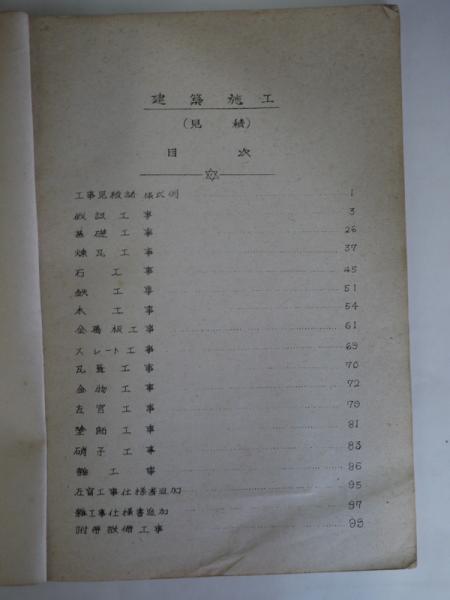 建築施工
(見積)
目次
工事見積書様式例 1
仮設工事 3
基礎工事 26
煉瓦工事 37
石工事 45
鉄工事 51
木工事 54
金属板工事 61
スレート工事 69
瓦葺工事 70
金物工事 72
左官工事 79
塗師工事 81
硝子工事 83
雑工事 86
左官工事仕様書追加 95
雑工事仕様書追加 97
附帯設備工事 98